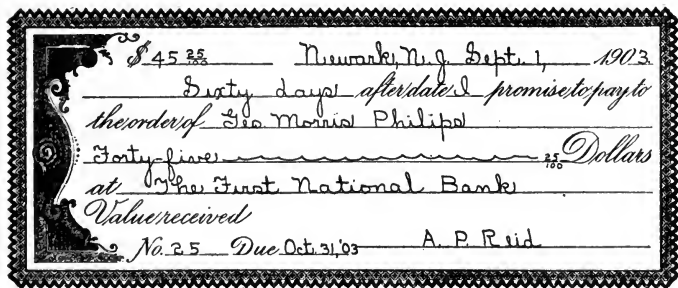 $ 45 25/100 Newark, N. J. Sept. 1, 1903
Sixty days after date I promise to pay to
the order of Geo. Morris Philips
Forty-five 25/100 Dollars
at The First National Bank
Value received
No. 25 Due Oct. 31, '03 A. P. Reid